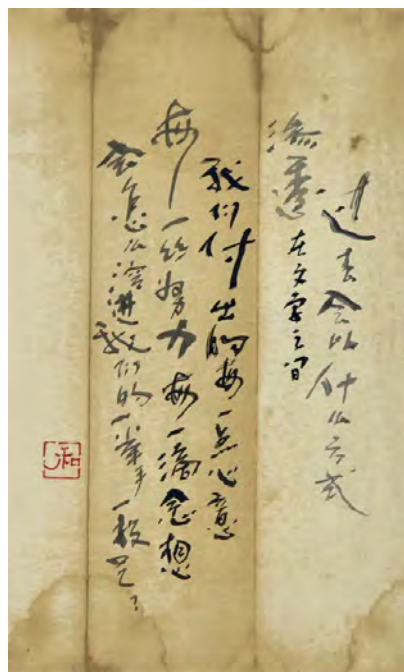 过去会以什么方式
渗透在文字之间
我们付出的每一点心意
每一丝努力每一滴念想
会怎么溶进我们的一举手一投足？